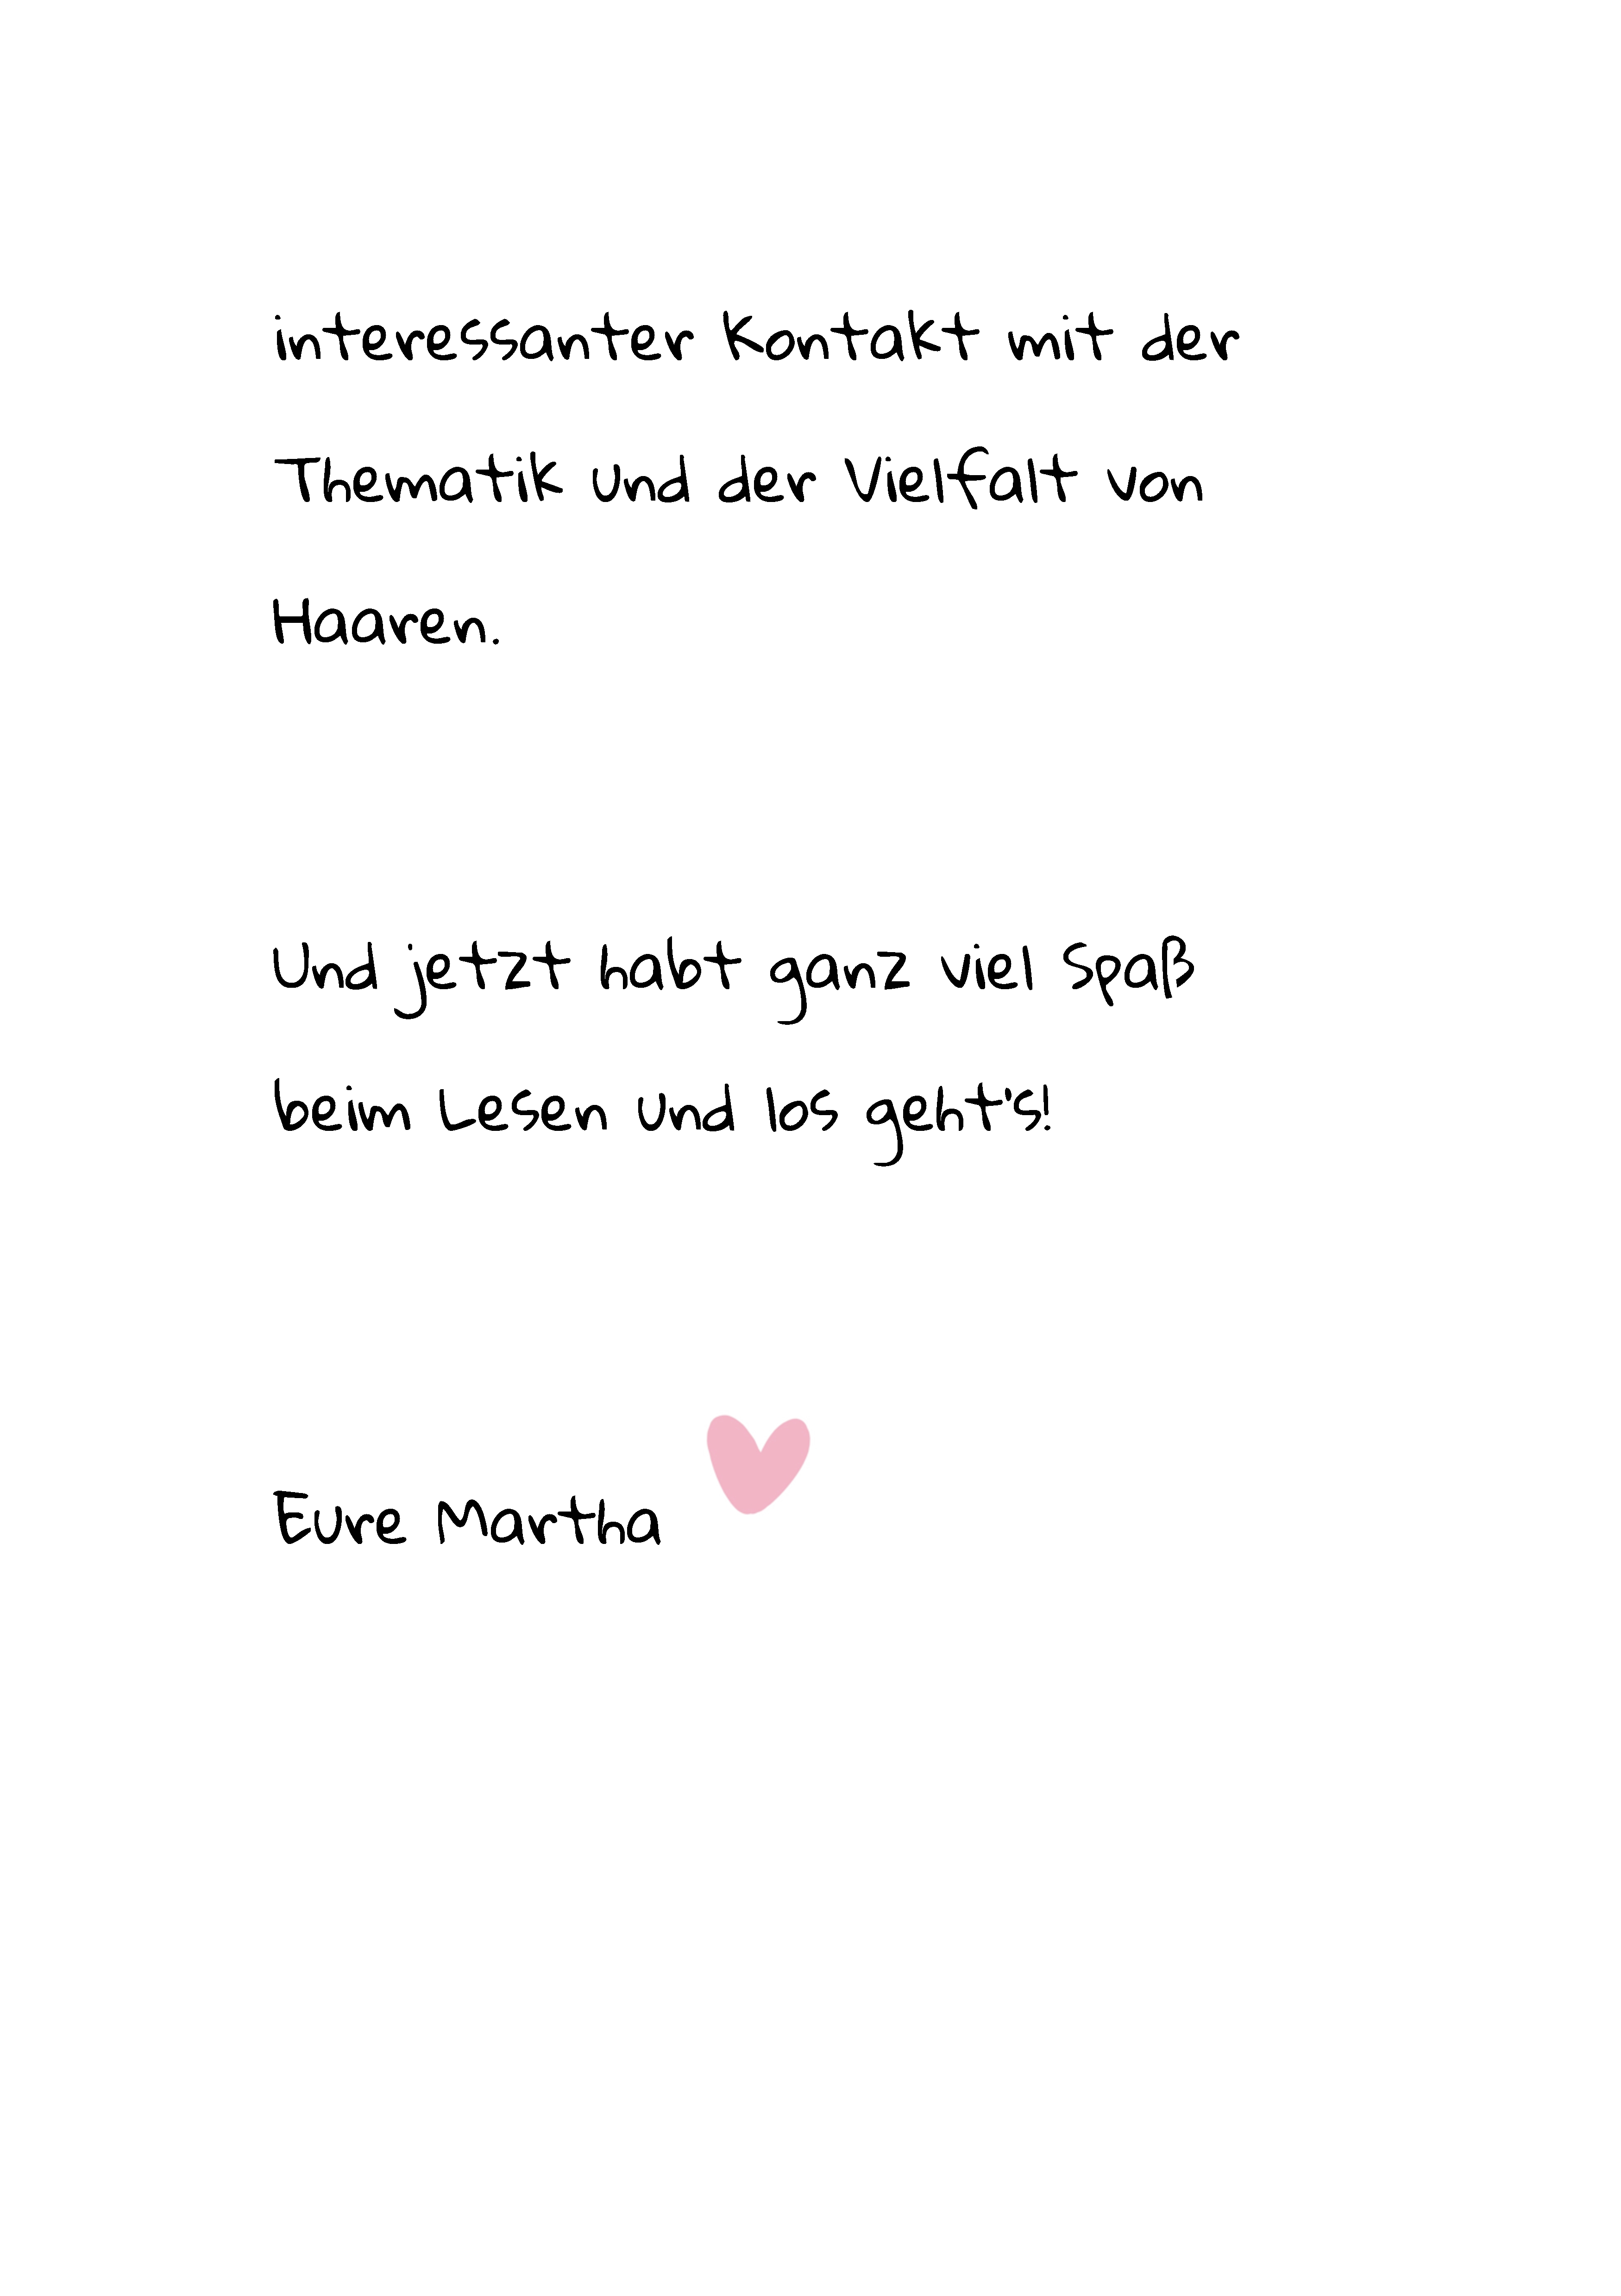 interessanter Kontakt mit der
Thematik und der Vielfalt von
Haaren.
Und jetzt habt ganz viel Spaß
beim Lesen und los geht's!
Eure Martha